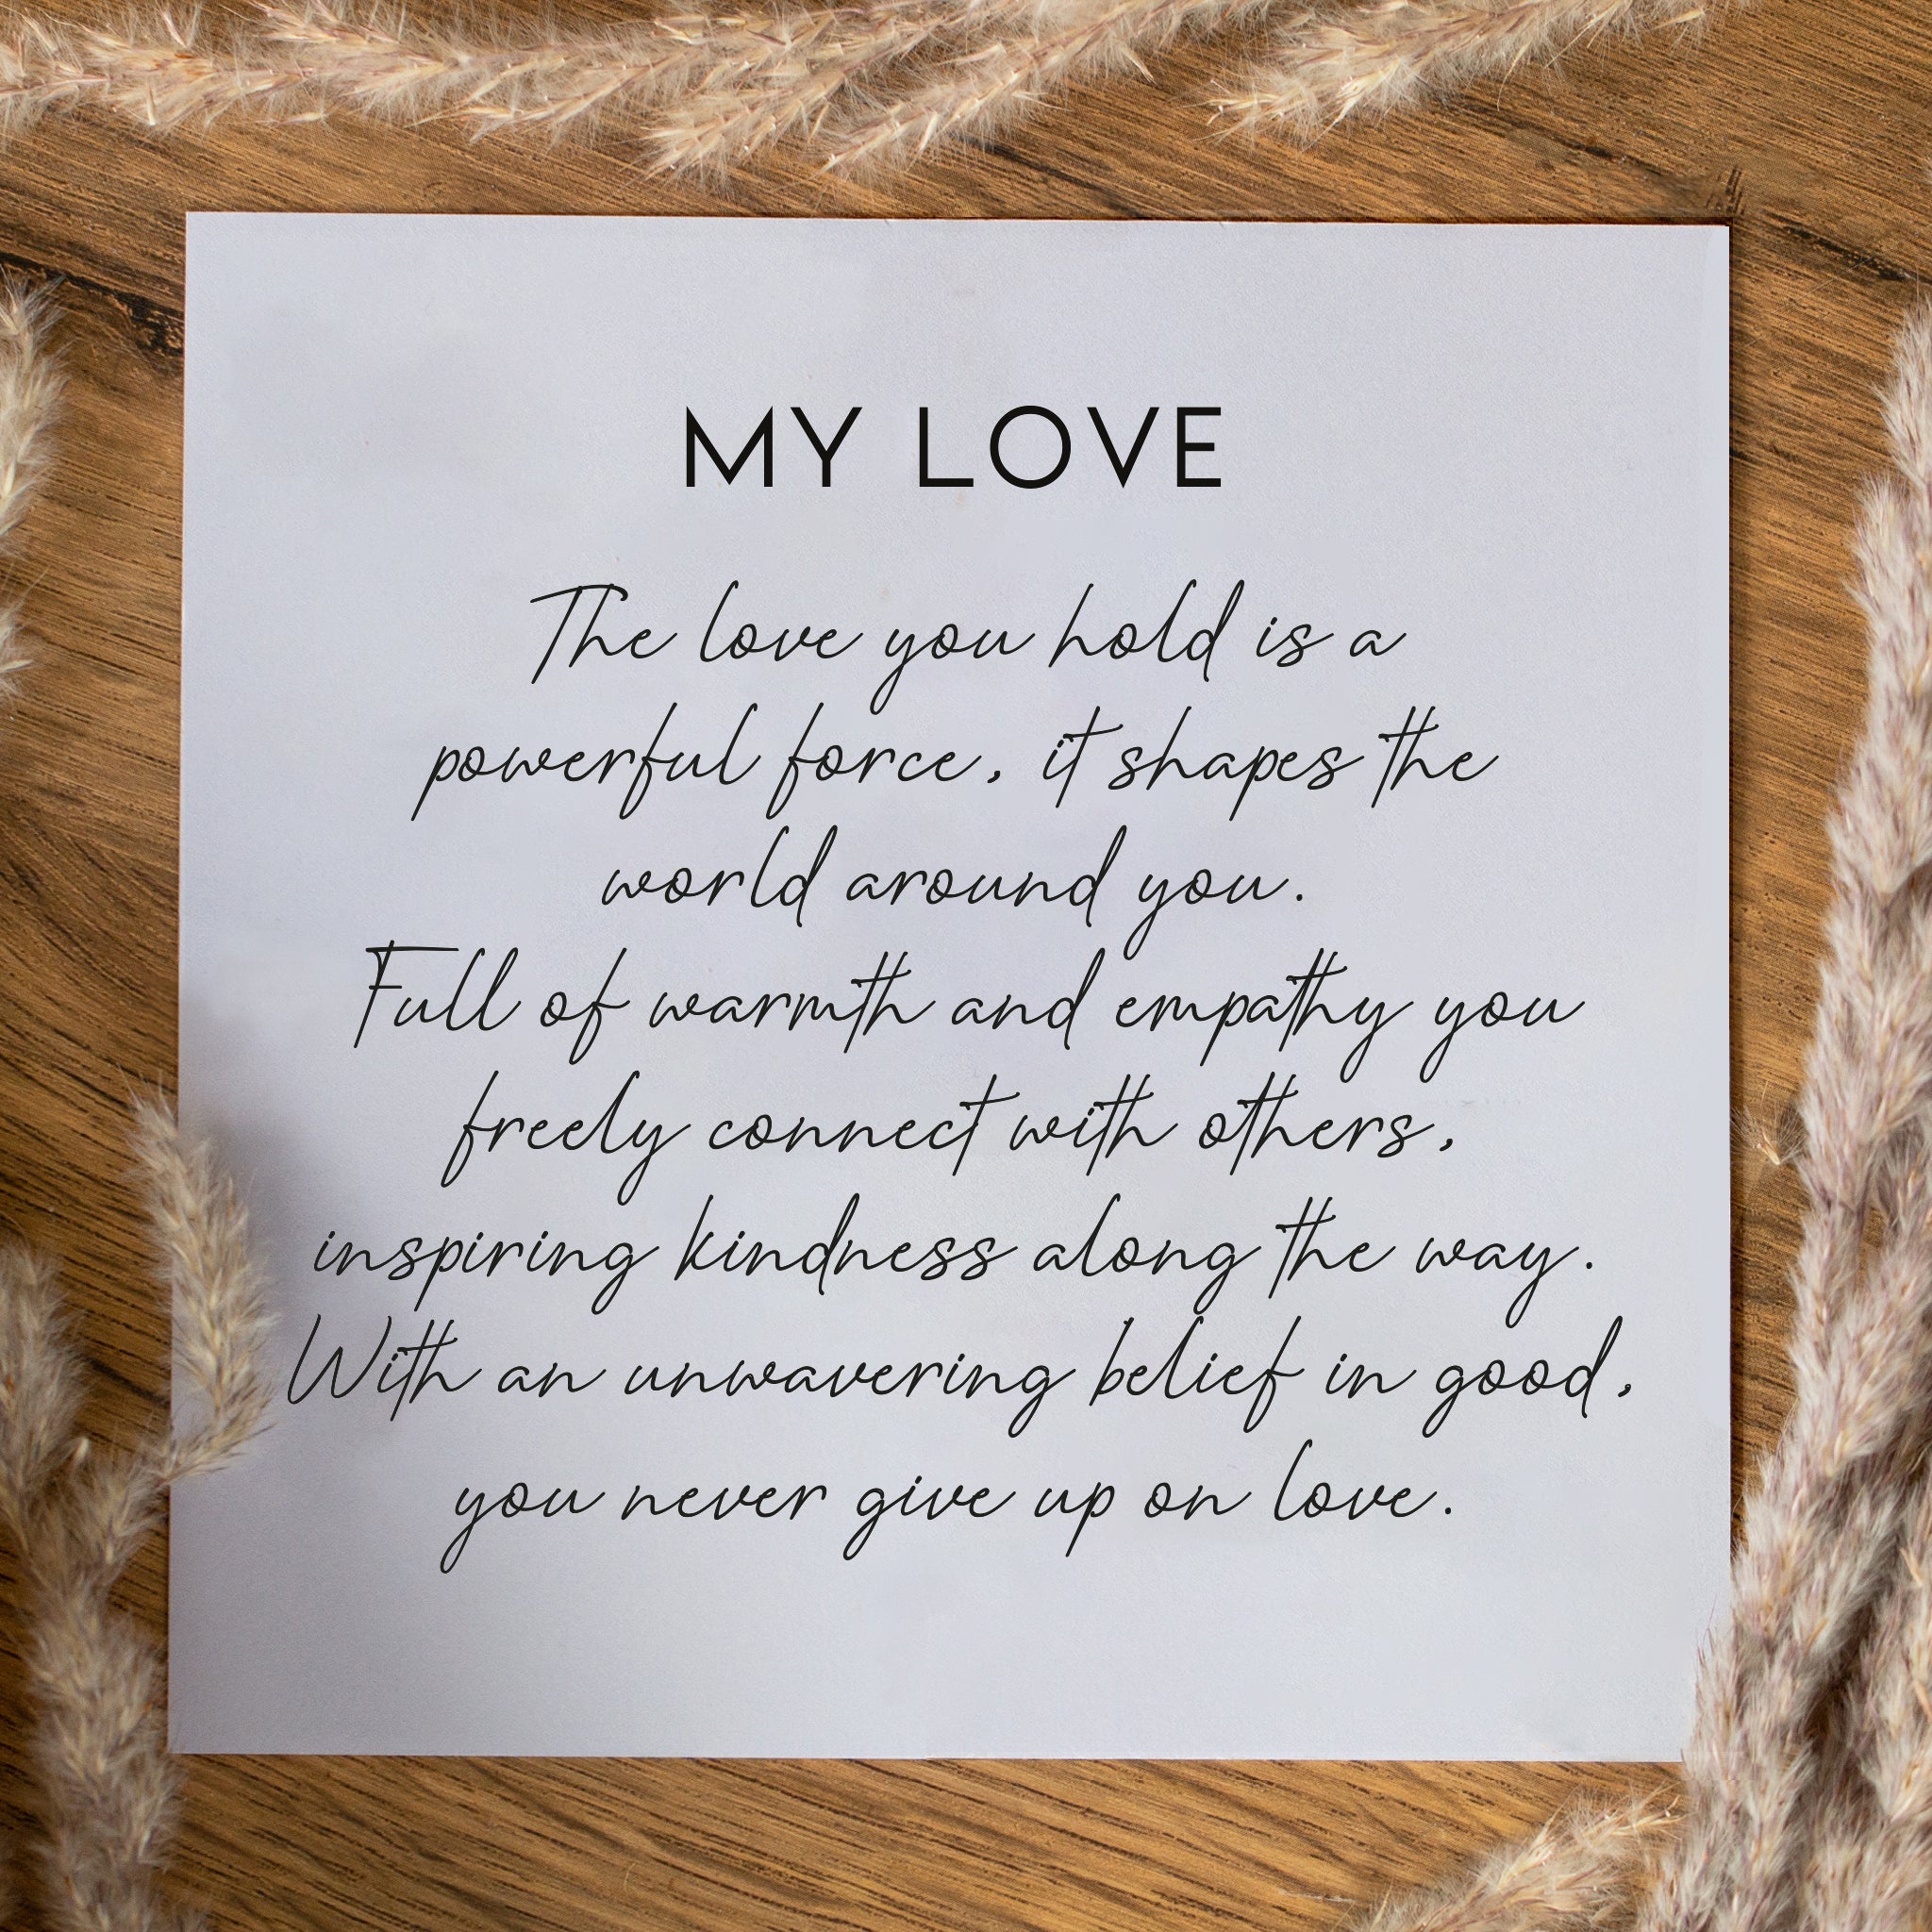 MY LOVE
The love you hold is a
powerful force, it shapes the
world around you.
Full of warmth and empathy you
freely connect with others,
inspiring kindness along the way.
With an unwavering belief in good,
you never give up on love.